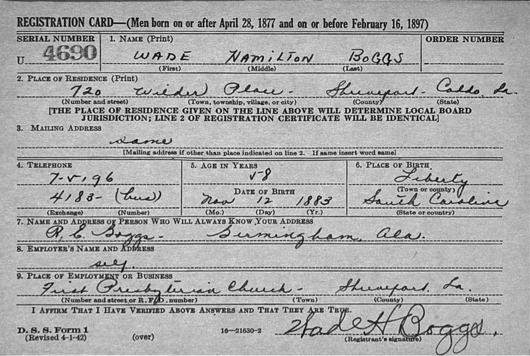 REGISTRATION CARD—(Men born on or after April 28, 1877 and on or before February 16, 1897)
SERIAL NUMBER 1. NAME (Print) ORDER NUMBER
U 4690 WADE HAMILTON BOGGS
(First) (Middle) (Last)
2. PLACE OF RESIDENCE (Print)
720 Wilder Place - Shreveport - Caddo, La.
(Number and street) (Town, township, village, or city) (County) (State)
[THE PLACE OF RESIDENCE GIVEN ON THE LINE ABOVE WILL DETERMINE LOCAL BOARD
JURISDICTION; LINE 2 OF REGISTRATION CERTIFICATE WILL BE IDENTICAL]
3. MAILING ADDRESS
Same
[Mailing address if other than place indicated on line 2. If same insert word same]
4. TELEPHONE 5. AGE IN YEARS 6. PLACE OF BIRTH
7-5196 58 Liberty
DATE OF BIRTH (Town or county)
4183- (bus) Nov 12 1883 South Carolina
(Exchange) (Number) (Mo.) (Day) (Yr.) (State or country)
7. NAME AND ADDRESS OF PERSON WHO WILL ALWAYS KNOW YOUR ADDRESS
R. E. Boggs - Birmingham, Ala.
8. EMPLOYER'S NAME AND ADDRESS
self
9. PLACE OF EMPLOYMENT OR BUSINESS
First Presbyterian Church - Shreveport, La.
(Number and street or R. F. D. number) (Town) (County) (State)
I AFFIRM THAT I HAVE VERIFIED ABOVE ANSWERS AND THAT THEY ARE TRUE.
D. S. S. Form 1
(Revised 4-1-42) (over) 16—21630-2 Wade H Boggs.
(Registrant's signature)